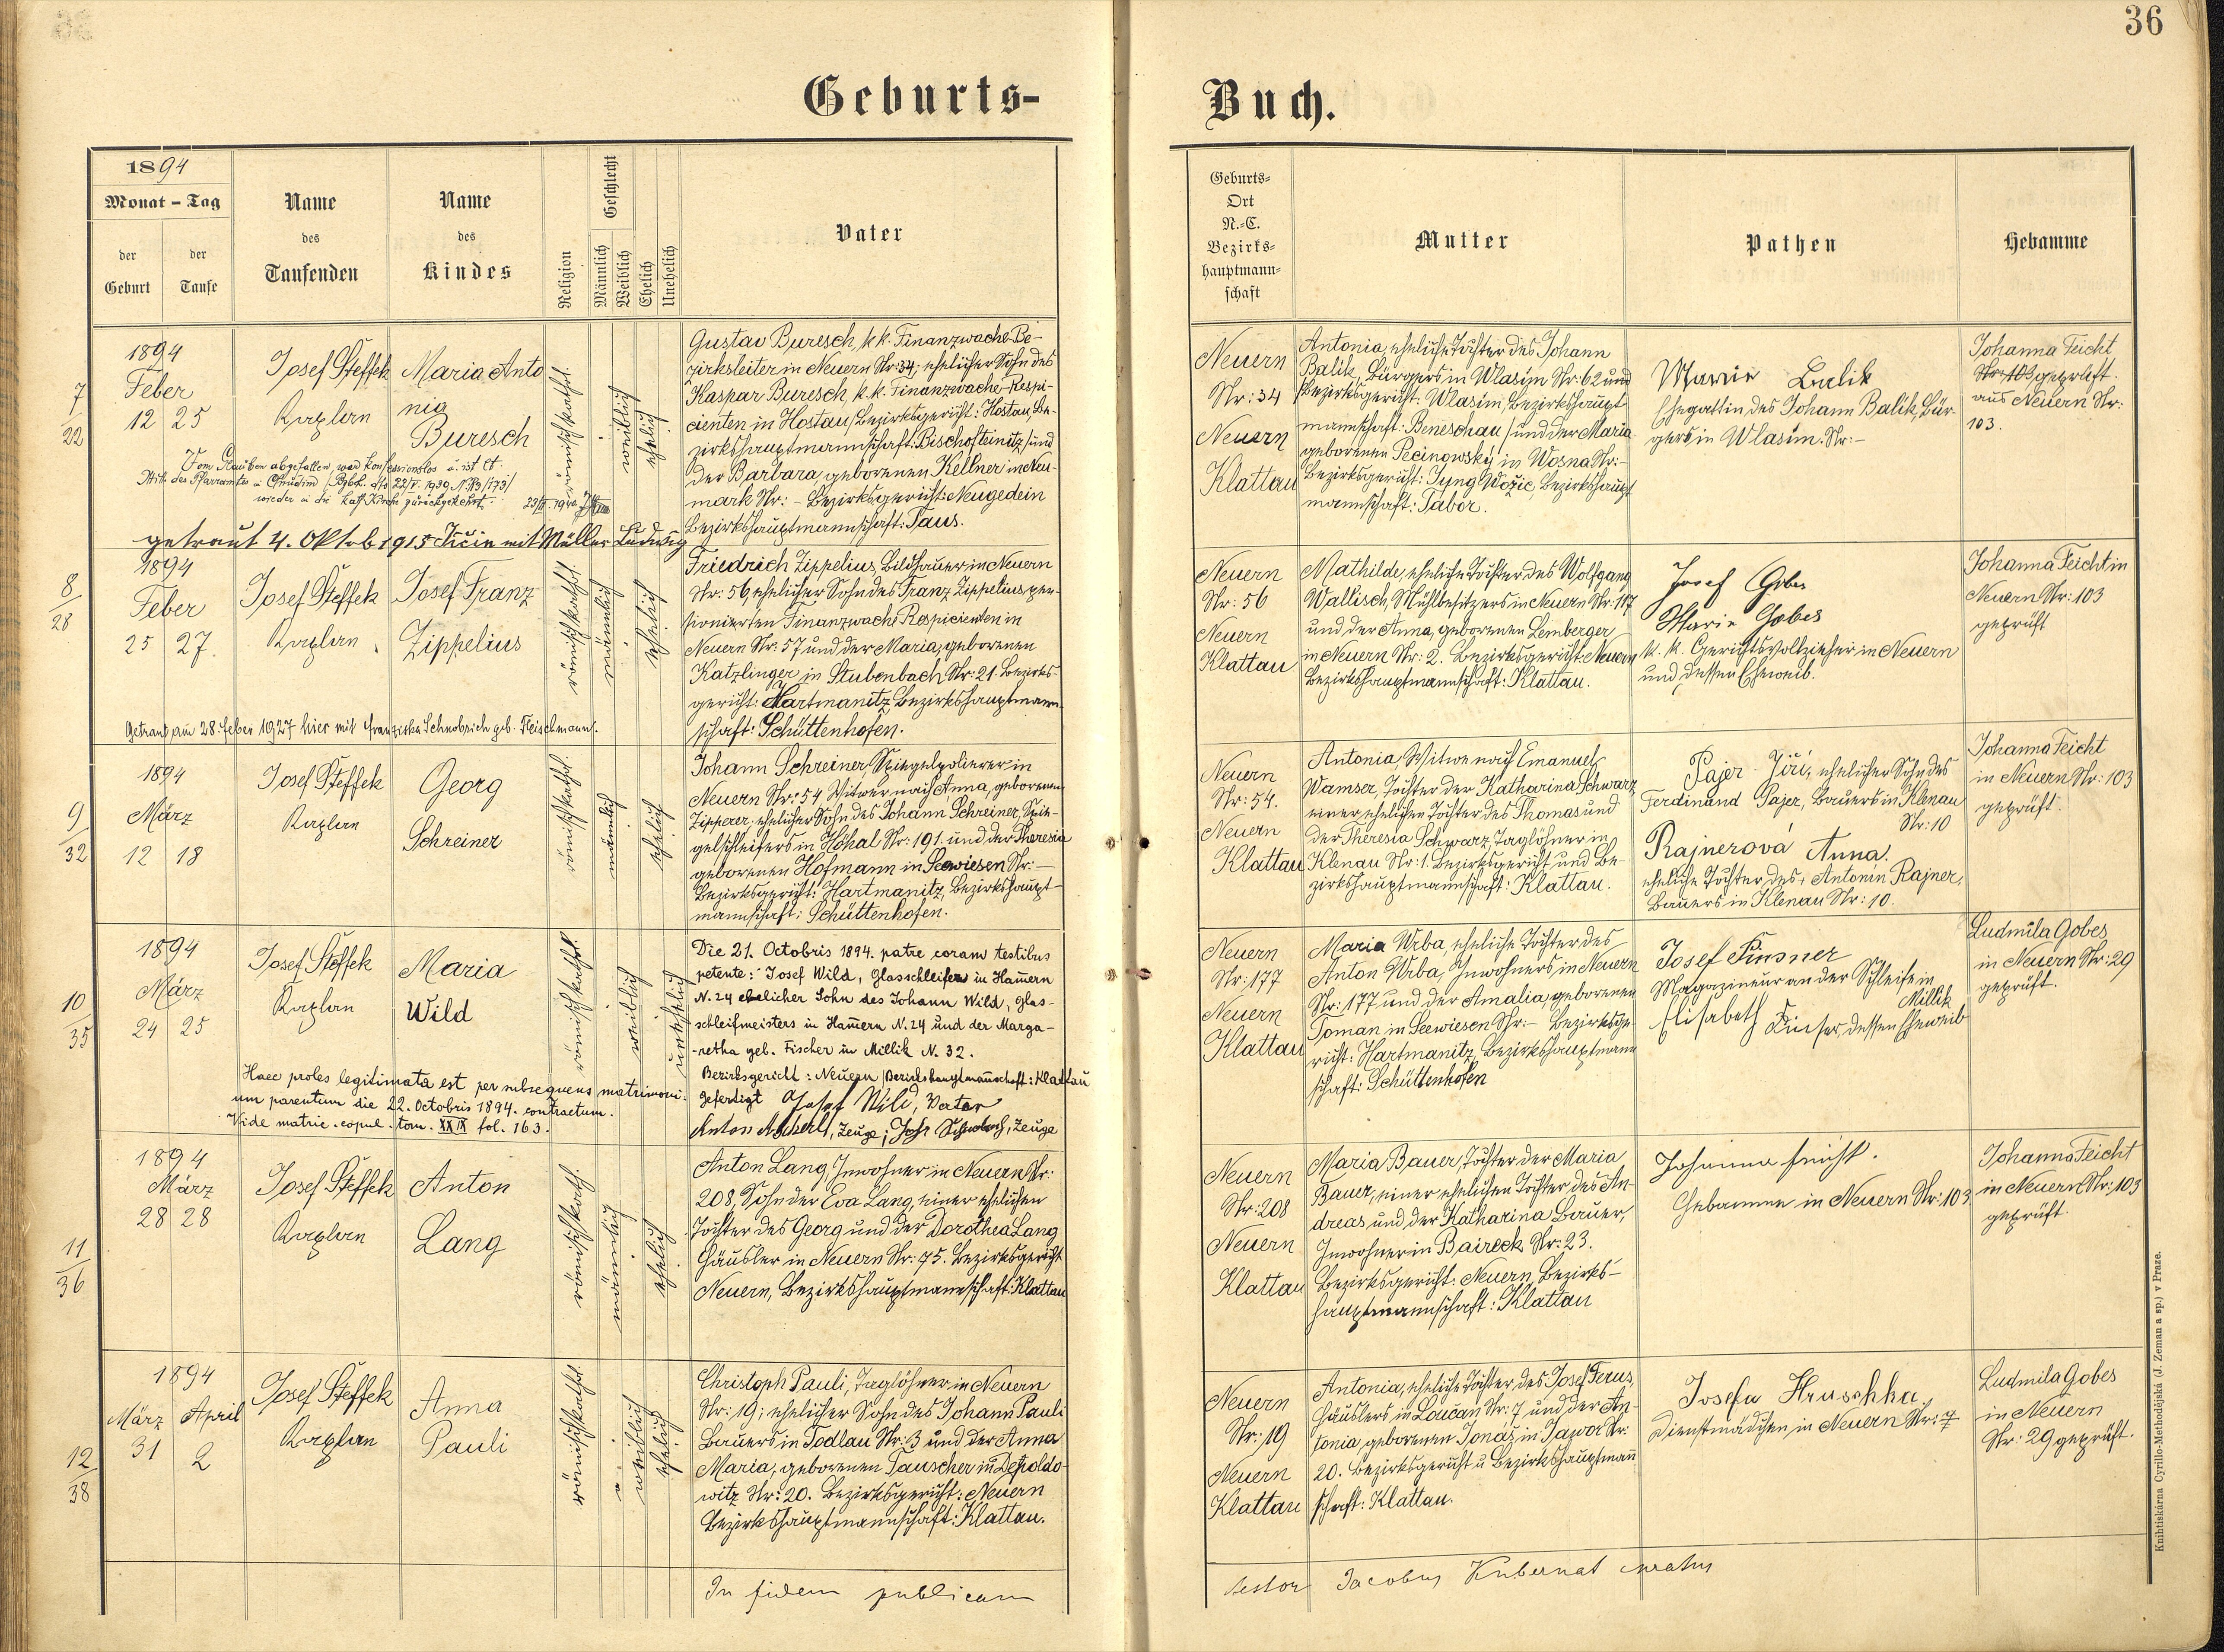 36
Geburts-
Buch.
1894
Monat - Tag
der Geburt
der Taufe
Name des Taufenden
Name des Kindes
Religion
Geschlecht
Männlich
Weiblich
Ehelich
Unehelich
Vater
Geburts-
Ort
N.-C.
Bezirks-
hauptmann-
schaft
Mutter
Pathen
Hebamme
7
22
1894
Feber
12 25
Josef Steffek
Kaplan
Maria Anto
nia
Buresch
römischkathol.
weiblich
ehelich
Gustav Buresch, k.k. Finanzwache-Be-
zirksleiter in Neuern Nr: 34; ehelicher Sohn des
Kaspar Buresch, k.k. Finanzwache-Respi-
cienten in Hostau /Bezirksgericht: Hostau, Be-
zirkshauptmannschaft: Bischofteinitz/ und
der Barbara, geborenen Kellner in Neu-
mark Nr: - Bezirksgericht: Neugedein
Bezirkshauptmannschaft: Taus.
Vom Glauben abgefallen, war konfessionslos u. ist lt.
Mit. des Pfarramtes in Chrudim
wieder in die kath. Kirche zurückgekehrt.
getraut 4. Oktob 1915 Jičin mit Müller Ludwig
Neuern
Nr: 34
Neuern
Klattau
Antonia, eheliche Tochter des Johann
Balik, Bürgers in Wlasim Nr: 62 und
/Bezirksgericht: Wlasim, Bezirkshaupt-
mannschaft: Beneschau/ und der Maria
geborenen Pecinowský in Wosna Nr: -
Bezirksgericht: Jung Wožic, Bezirkshaupt
mannschaft: Tabor.
Marie Balik
Ehegattin des Johann Balik, Bür-
gers in Wlasim. Nr: -
Johanna Feicht
Nr: 103 geprüft.
aus Neuern Nr:
103.
8
28
1894
Feber
25 27.
Josef Steffek
Kaplan
Josef Franz
Zippelius
römischkathol.
männlich
ehelich
Friedrich Zippelius, Bildhauer in Neuern
Nr: 56, ehelicher Sohn des Franz Zippelius, pen-
sionierten Finanzwache Respicienten in
Neuern Nr: 57 und der Maria, geborenen
Katzlinger in Stubenbach Nr: 21. Bezirks-
gericht: Hartmanitz, Bezirkshauptmann-
schaft: Schüttenhofen.
Getraut am 28. Feber 1927 hier mit Franziska Schnobrich geb. Fleischmann.
Neuern
Nr: 56
Neuern
Klattau
Mathilde, eheliche Tochter des Wolfgang
Wallisch, Mühlbesitzers in Neuern Nr: 117
und der Anna, geborenen Lemberger
in Neuern Nr: 2. Bezirksgericht: Neuern
Bezirkshauptmannschaft: Klattau.
Josef Gobes
Marie Gobes
k. k. Gerichtsvollzieher in Neuern
und dessen Eheweib.
Johanna Feicht in
Neuern Nr: 103
geprüft
9
32
1894
März
12 18
Josef Steffek
Kaplan
Georg
Schreiner
römischkathol.
männlich
ehelich
Johann Schreiner, Spiegelpolierer in
Neuern Nr: 54 Witwer nach Anna, geborenen
Zipperer; ehelicher Sohn des Johann Schreiner, Spie-
gelschleifers in Höhal Nr: 191. und der Theresia
geborenen Hofmann in Seewiesen Nr: -
Bezirksgericht: Hartmanitz, Bezirkshaupt-
mannschaft: Schüttenhofen.
Neuern
Nr: 54.
Neuern
Klattau
Antonia, Witwe nach Emanuel
Wamser, Tochter der Katharina Schwarz
einer ehelichen Tochter des Thomas und
der Theresia Schwarz, Taglöhner in
Klenau Nr: 1. Bezirksgericht und Be-
zirkshauptmannschaft: Klattau.
Pajer Jiří, ehelicher Sohn des
Ferdinand Pajer, Bauers in Klenau
Nr: 10
Rajnerová Anna.
eheliche Tochter des Antonin Rajner,
Bauers in Klenau Nr: 10.
Johanna Feicht
in Neuern Nr: 103
geprüft.
10
35
1894
März
24 25
Josef Steffek
Kaplan
Maria
Wild
römischkathol.
weiblich
unehelich
Die 21. Octobris 1894. patre coram testibus
petente: Josef Wild, Glasschleifers in Hamern
N. 24 ehelicher Sohn des Johann Wild, Glas-
schleifmeisters in Hamern N. 24 und der Marga-
-retha geb. Fischer in Millik N. 32.
Bezirksgericht: Neuern, Bezirkshauptmannschaft: Klattau
Gefertigt Josef Wild, Vater
Anton, Zeuge; Josef, Zeuge
Haec proles legitimata est per subsequens matrimoni-
um parentum die 22. Octobris 1894. contractum.
Vide matric. copul. tom. XXIX fol. 163.
Neuern
Nr: 177
Neuern
Klattau
Maria Wrba, eheliche Tochter des
Anton Wrba, Inwohners in Neuern
Nr: 177 und der Amalia, geborenen
Toman in Seewiesen Nr: - Bezirksge-
richt: Hartmanitz, Bezirkshauptmann
schaft: Schüttenhofen
Josef Finsner
Magazineur an der Schleife in
Millik
Elisabeth, dessen Eheweib
Ludmila Gobes
in Neuern Nr: 29
geprüft.
11
36
1894
März
28 28
Josef Steffek
Kaplan
Anton
Lang
römischkath.
männlich
ehelich
Anton Lang, Inwohner in Neuern Nr:
208, Sohn der Eva Lang, einer ehelichen
Tochter des Georg und der Dorothea Lang
Häusler in Neuern Nr: 75. Bezirksgericht
Neuern, Bezirkshauptmannschaft: Klattau
Neuern
Nr: 208
Neuern
Klattau
Maria Bauer, Tochter der Maria
Bauer, einer ehelichen Tochter des An-
dreas und der Katharina Bauer,
Inwohner in Baireck Nr: 23.
Bezirksgericht: Neuern, Bezirks-
hauptmannschaft: Klattau
Johanna Feicht.
Hebamme in Neuern Nr: 103
Johanna Feicht
in Neuern Nr: 103
geprüft
12
38
1894
März April
31 2
Josef Steffek
Kaplan
Anna
Pauli
römischkathol.
weiblich
ehelich
Christoph Pauli, Taglöhner in Neuern
Nr: 19; ehelicher Sohn des Johann Pauli
Bauers in Todlau Nr: 3 und der Anna
Maria, geborenen Tauscher in Depoldo-
witz Nr: 20. Bezirksgericht: Neuern
Bezirkshauptmannschaft: Klattau.
Neuern
Nr: 19
Neuern
Klattau
Antonia, eheliche Tochter des Josef Ferus,
Häuslers inLoučan Nr: 7 und der An-
tonia, geborenen Jonáš in Jawor Nr:
20. Bezirksgericht u Bezirkshauptmann
schaft: Klattau.
Josefa Hruschka
Dienstmädchen in Neuern Nr: 7
Ludmila Gobes
in Neuern
Nr: 29 geprüft.
In fidem publicam
testor Jacobus Kubernat curatus
Knihtiskárna Cyrillo-Methodějská (J. Zeman a sp.) v Praze.